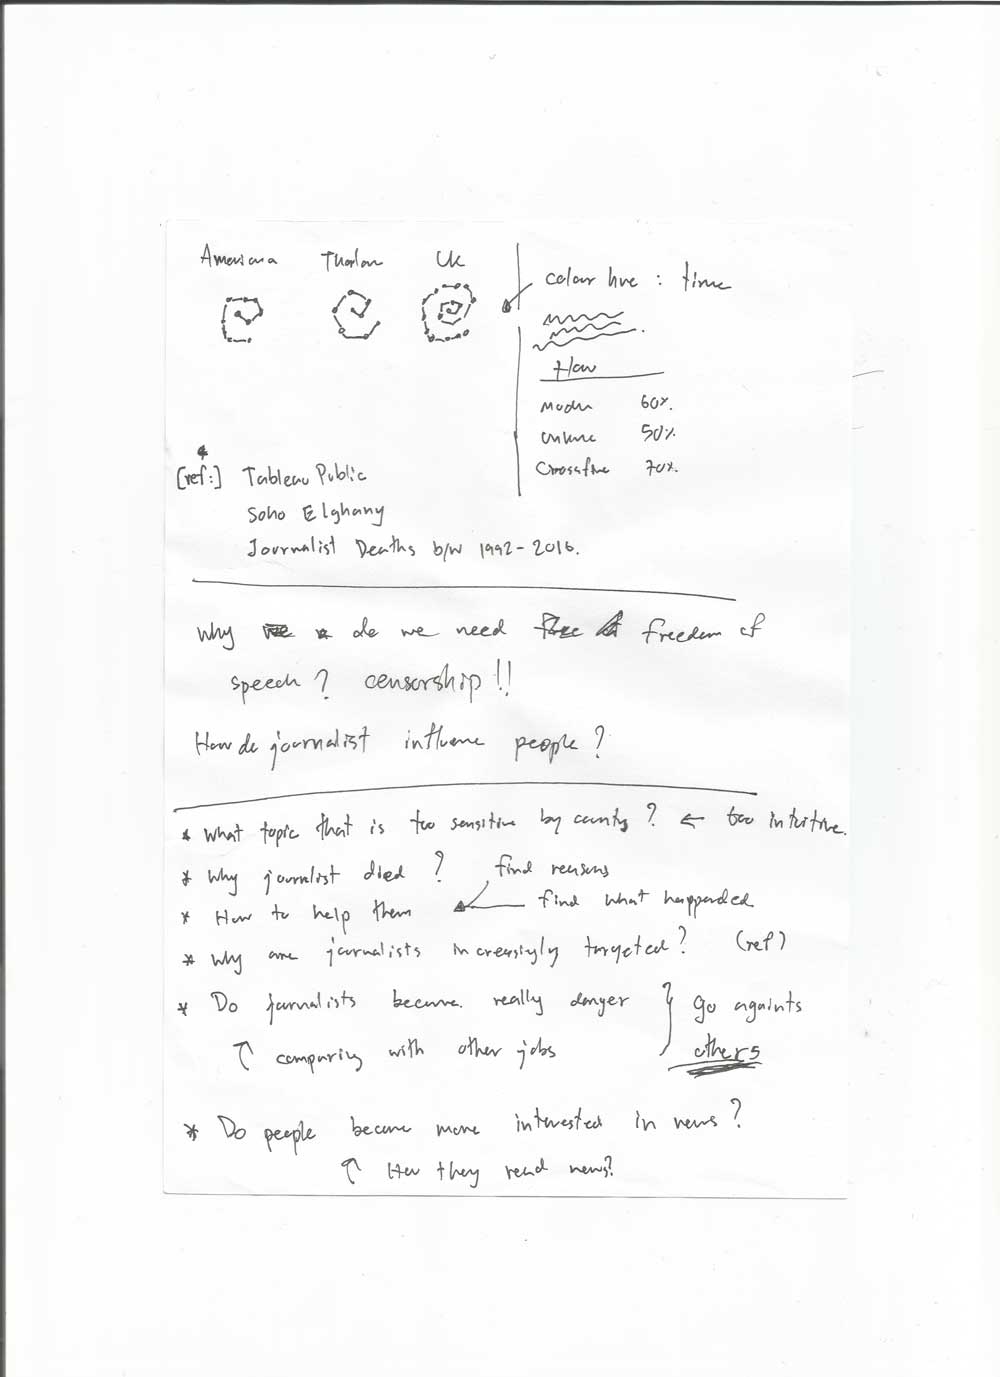 UK
colour hue : time
How
60%.
50%
Crossfire 70%.
[ref:] Tableau Public
Soho Elghany
Journalist Deaths b/w 1992 - 2016.
Why do we need freedom of
speech? censorship!!
How do journalist influene people?
* What topic that is too sensitive by county? ← too intuitive.
* Why journalist died? find reasons
* How to help them find what happended
* Why are journalists increasingly targeted? (ref)
* Do journalists become really danger } go againts
comparing with other jobs others
* Do people become more interested in news?
How they read news?